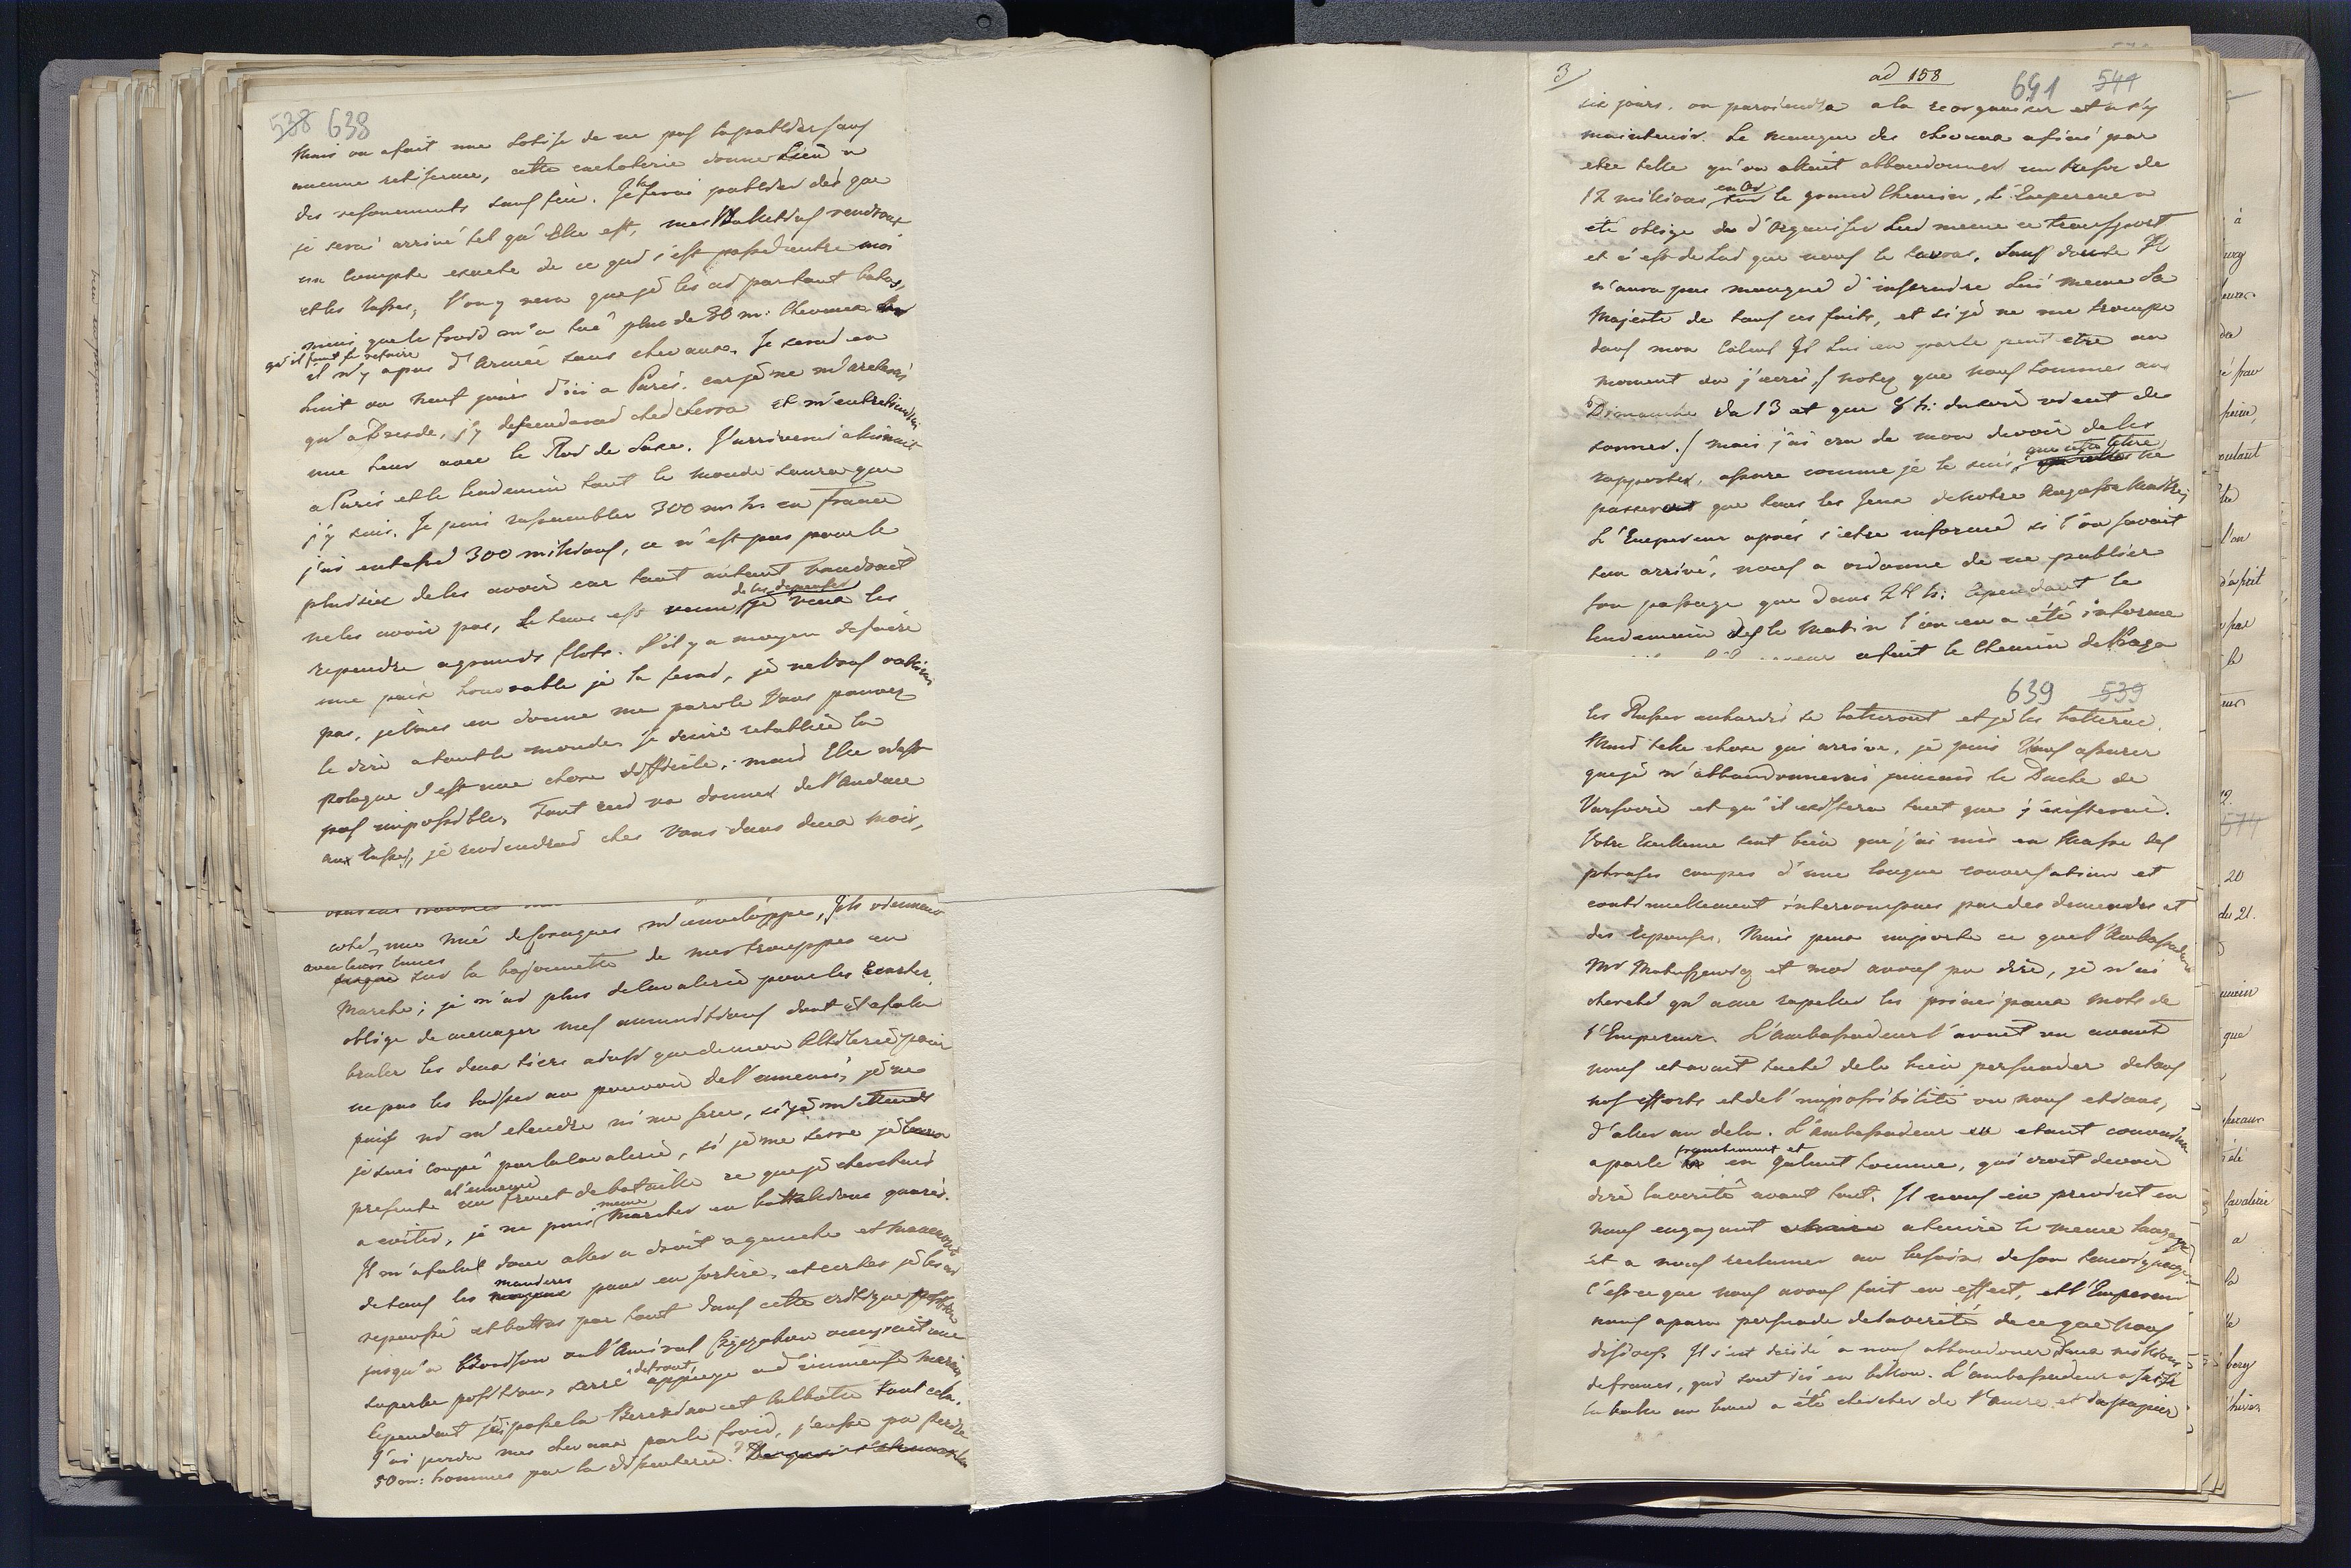 538 638
Mais on a fait une sotise de ne pas la publier sans
aucune retisence, cette cachoterie donne Lieu a
des resonements sans fin. Je la ferai publier dès que
je serai arrivé tel qu'Elle est, mes Bulletins rendront
un Compte exacte de ce qui s'est passé entre moi
et les Russes, l'on y vera que je les ai partout batus,
mais que le froid m'a tué plus de 30 m: Chevaux
qu'il faut se refaire
il n'y a pas d'Armée sans chevaux. Je serai en
huit ou neuf jours d'ici a Paris. car je ne m'areterai
qu'a Dresde, j'y descenderai ched Serra et m'entretiendrai
une heur avec le Roi de Saxe. J'arriverai a minuit
a Paris et le lendemain tout le monde saura que
j'y suis. Je puis rassembler 300 m h. en France
j'ai entassé 300 milions, ce n'est pas pour le
plaisir de les avoir car tout autant vaudrait
de les depenser
ne les avoir pas, le tems est venu je veux les
repandre a grands flots. S'il y a moyen de faire
une paix honorable je la ferai, je ne vous oublierai
pas, je Vous en donne ma parole Vous pouvez
le dire a tout le monde. Je desire retablir la
pologne C'est une chose difficile, mais Elle n'est
pas impossible, Tout ceci va donner de l'Audace
aux Russes, je reviendrai chez Vous dans deux mois,
coté, une nué de Cosaques m'enveloppe, Ils viennent
avec leurs lances
jusque sur la bajonnette de mes trouppes en
Marche; je n'ai plus de Cavalerie pour les Ecarter,
obligé de menager mes munitions dont il a falu
bruler les deux tiers ainsi que de mon Artilerie pour
ne pas les laisser au pouvoir de l'ennemi, je ne
puis ni m'etendre ni me serer, si je m'etends
je suis coupé par la Cavalerie, si je me serre je
a l'ennemi
presente un front de bataille ce que je cherchais
meme
a eviter, je ne puis Marcher en battaillons quarés.
Il m'a falut donc aller a droit a gauche et manœuvrer
manieres
de tous les pour en sortire, et certes je les ai
repoussé et battus par tout dans cette critique position
jusqu'a Borisow ou l'Amiral Czyczakow occupait une
de front
superbe position, serré appuyé a d'immenses marais
Cependant j'ai passé la Berezina et culbuté tout cela.
J'ai perdu mes chevaux par le froid, j'eusse pu perdre
50 m: hommes par la dissenterie.
3/ ad 158 641 541
six jours. on parviendra a la reorganiser et a s'y
maintenir. Le manque des chevaux a fini par
etre telle qu'on alait abbandonner un tresor de
en Or
12 milions sur le grand Chemin, L'Empereur a
été obligé de d'organiser Lui meme ce transport
et c'est de Lui que nous le savons. Sans doute Il
n'aura pas manqué d'instruire Lui meme Sa
Majesté de tous ces faits, et si je ne me trompe
dans mon Calcul Il Lui en parle peut etre au
moment ou j'ecris, / notez que nous sommes au
Dimanche du 13 et que 8 h: du soir vient de
sonner. / mais j'ai cru de mon devoir de les
que cette lettre
rapporter, assuré comme je le suis, ne
passera que sous les yeux de notre Auguste Maitre.
L'Empereur après s'etre informé si l'on savait
son arrivé, nous a ordonné de ne publier
son passage que dans 24 h: Cependant le
lendemain des le Matin l'on en a été informé
a fait le Chemin de Praga
639 539
les Russes enhardis se batteront et je les batterai.
Mais telle chose qui arrive, je puis Vous assurer
que je n'abbandonnerai jamais le Duché de
Varsovie et qu'il existera tant que j'existerai.
Votre Excellence sent bien que j'ai mis en Masse des
phrases coupés d'une longue conversation et
continuellement interrompues par des demandes et
des reponses. Mais peux importe ce que l'Ambassadeur
Mr Matuszewicz et moi avons pu dire, je n'ai
cherché qu'a me rapeller les principaux mots de
l'Empereur. L'Ambassadeur l'avait vu avant
nous et avait taché de le bien persuader de tous
nos efforts et de l'impossibilité ou nous etions,
d'aller au dela. L'Ambassadeur en etant convaincu
franchement et
a parlé en galant homme, qui croit devoir
dire la verité avant tout. Il nous en previnit en
nous engageant a tenire le meme langage
et a nous reclamer au besoin de son temoignage.
C'est ce que nous avons fait en effect, et l'Empereur
nous a paru persuadé de la verité de ce que nous
disions. Il s'est decidé a nous abbandoner deux milions
de francs, qui sont ici en billon. L'ambassadeur a
la table au bond a été chercher de l'encre et du papier